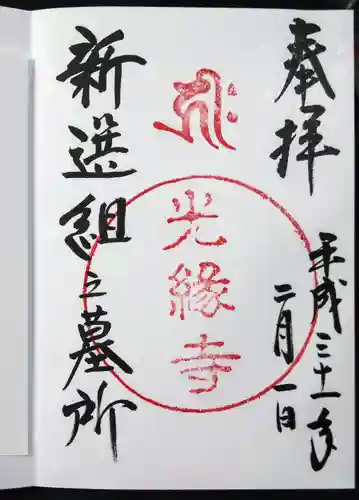 奉拝
平成三十一年
二月一日
光縁寺
新選組之墓所